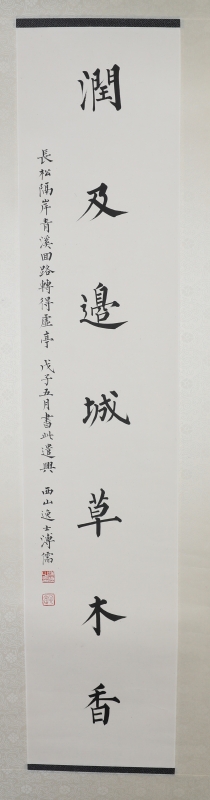 潤及邊城草木香
長松隔岸青溪回路轉得虛亭 戊子五月書此遣興 西山逸士溥儒